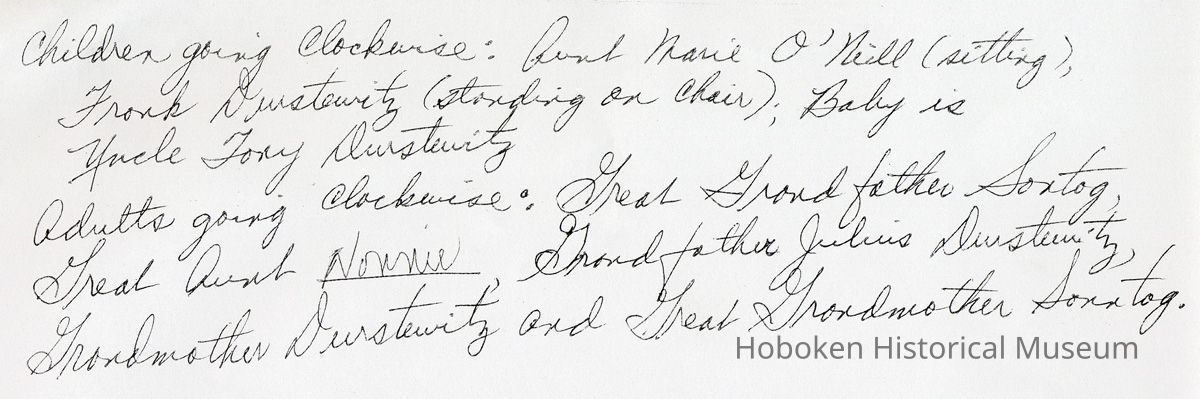 Children going Clockwise: Aunt Marie O'Neill (sitting),
Frank Durstewitz (standing on chair); Baby is
Uncle Tony Durstewitz
Adults going clockwise: Great Grandfather Sontag,
Great Aunt Nonnie, Grandfather Julius Durstewitz,
Grandmother Durstewitz and Great Grandmother Sonntag.
Hoboken Historical Museum